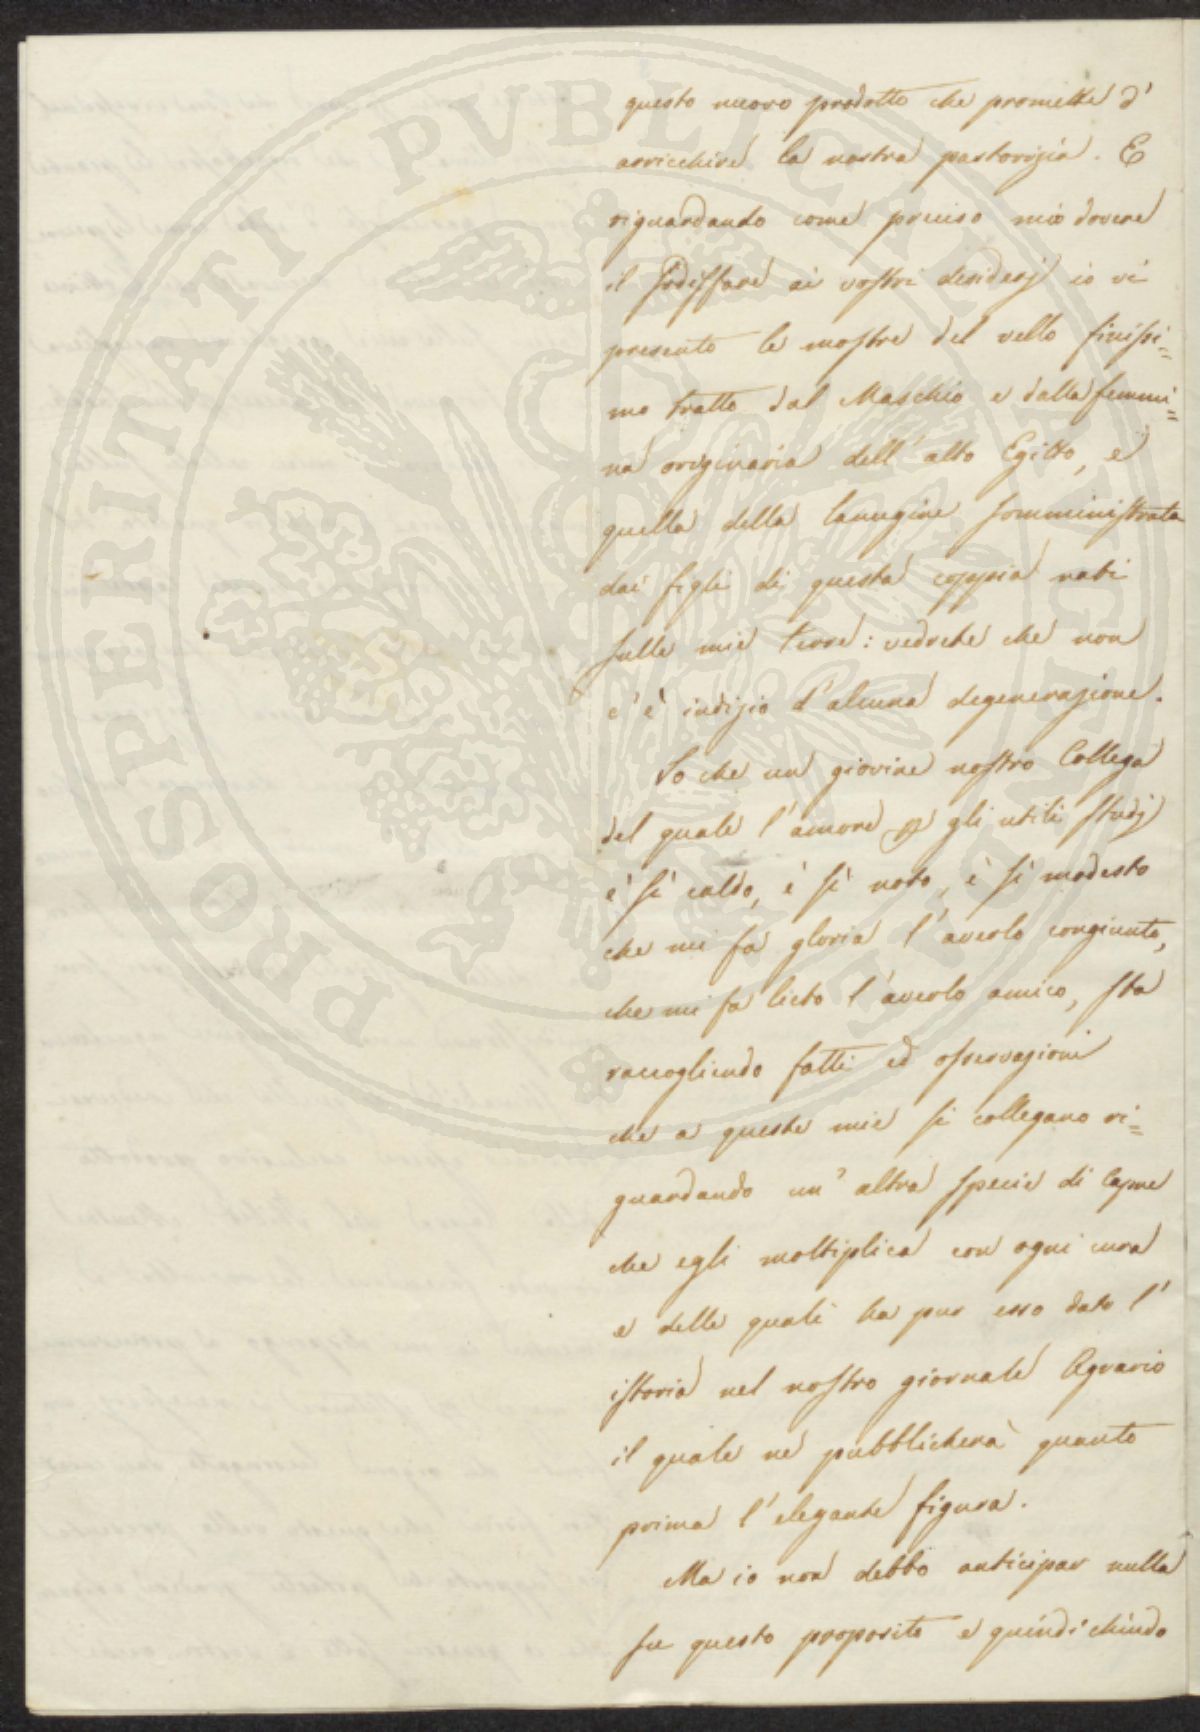 questo nuovo prodotto che promette d'
arricchire la nostra pastorizia. E
riguardando come preciso mio dovere
il sodisfare ai vostri desiderj io vi
presento le mostre del vello finissi=
mo tratto dal Maschio e dalla femmi=
na originaria dell'alto Egitto, e
quella della lanugine somministrata
dai figli di questa coppia nati
sulle mie terre: vedrete che non
c'è indizio d'alcuna degenerazione.
So che un giovine nostro Collega
del quale l'amore per gli utili studj
è sì caldo, è sì noto, è sì modesto
che mi fa gloria l'averlo congiunto,
che mi fa lieto l'averlo amico, sta
raccogliendo fatti ed osservazioni
che a queste mie si collegano ri=
guardando un'altra specie di Capre
che egli moltiplica con ogni cura
e delle quali ha pur esso dato l'
istoria nel nostro giornale Agrario
il quale ne pubblicherà quanto
prima l'elegante figura.
Ma io non debbo anticipar nulla
su questo proposito e quindi chiudo
PROSPERITATI PVBLICAE AVGENDAE